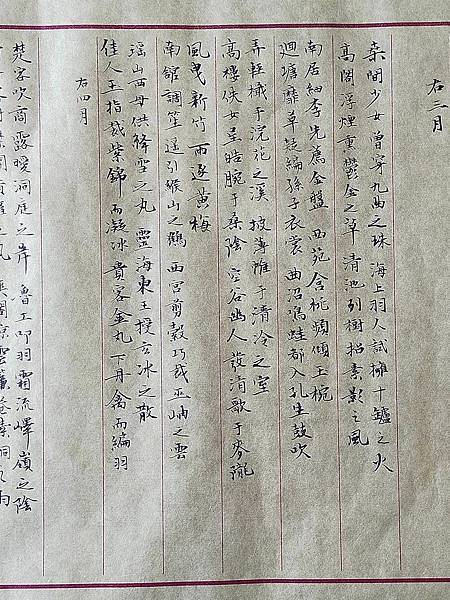 右三月
桑間少女曾穿九曲之珠 海上羽人試擁十爐之火
高閣浮煙熏鬱金之草 清池列樹招素影之風
南居細李先薦金盤 西苑含桃頻傾玉椀
迴塘靡草疑編孫子衣裳 曲沼鳴蛙都入孔生鼓吹
弄輕橈于浣花之溪 披薄帷于清冷之室
高樓佚女呈皓腕于桑陰 空谷幽人發清歌于麥隴
風曳新竹 雨逐黃梅
南館調笙遥引緱山之鶴 西宮剪縠巧裁巫岫之雲
瑶山西母供絳雪之丸 靈海東王授玄冰之散
佳人玉指裁紫錦而凝冰 貴客金丸下丹禽而編羽
右四月
楚客吹商露暖洞庭之岸 魯工叩羽霜流嶧嶺之陰